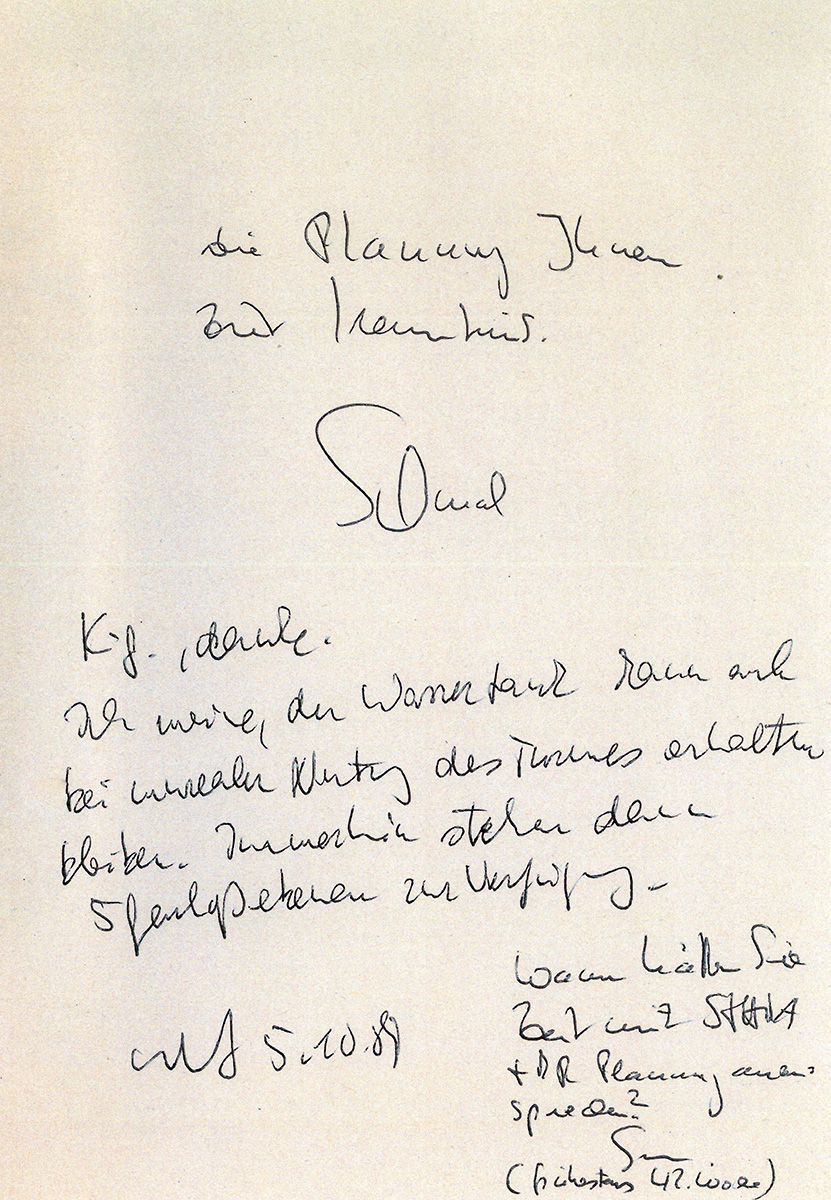 die Planung Ihnen
zur Kenntnis.
Schmal
K.g., danke.
Ich meine, der Wassertank kann auch
bei musealer Nutzung des Turmes erhalten
bleiben. Immerhin stehen dann
5 Geschoßebenen zur Verfügung.
5.10.89
Wann hätten Sie
Zeit mit
+ Planung anzu-
sprechen?
(frühestens 42. Woche)